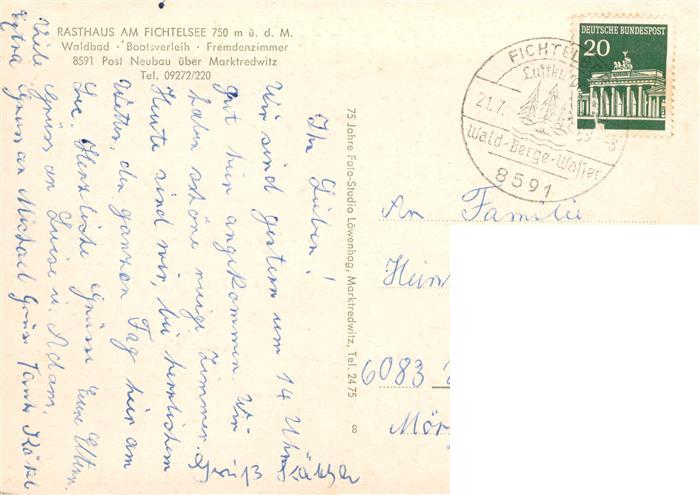 RASTHAUS AM FICHTELSEE 750 m ü. d. M.
Waldbad · Bootsverleih · Fremdenzimmer
8591 Post Neubau über Marktredwitz
Tel. 09272/220
Ihr Lieben!
Wir sind gestern um 14 Uhr
gut hier angekommen. Wir
haben schöne ruige Zimmer.
Heute sind wir, bei herrlichem
Wetter, den ganzen Tag hier am
See. Herzliche Grüsse Eure Eltern.
Viele Grüsse an Luise u. Adam.
Extra Gruss an Michael Gruss Tante Käthe
Gruß Käthe
75 Jahre Foto-Studio Löwenhag, Marktredwitz, Tel. 2475
8
DEUTSCHE BUNDESPOST
20
FICHTEL
Luftku
21.7.
-8
Wald-Berge-Wasser
8591
An Familie
Hein
6083
Mör